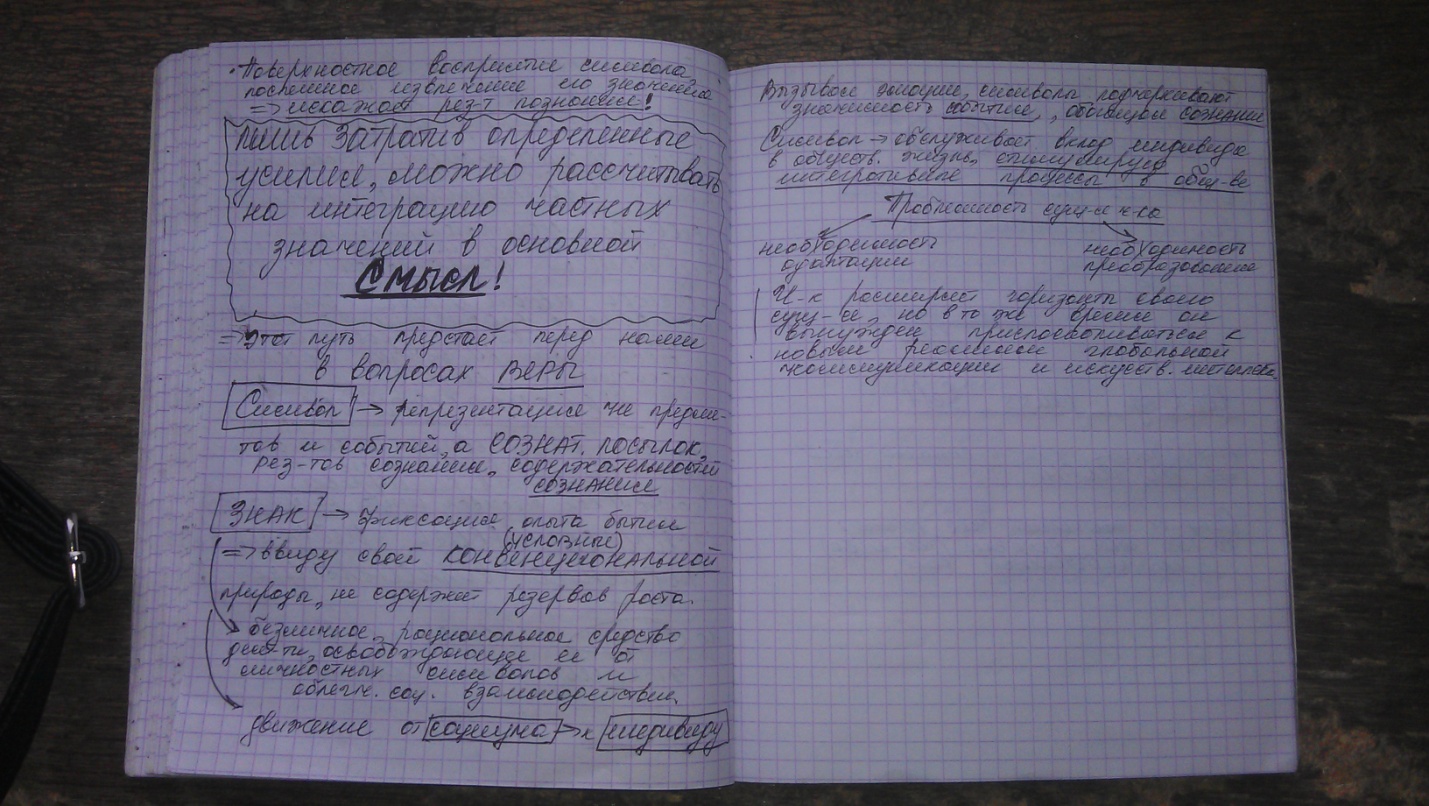 • Поверхностное восприятие символа,
поспешное извлечение его значения
=> искажает рез-т познания!
лишь затратив определенные
усилия, можно рассчитывать
на интеграцию частных
значений в основной
Смысл!
=> Этот путь предстает перед нами
в вопросах ВЕРЫ
Символ → репрезентация не предме-
тов и событий, а СОЗНАТ. посылок,
рез-тов сознания, содержательностей
сознания
ЗНАК → фиксация опыта бытия
(условный)
=> ввиду своей КОНВЕНЦИОНАЛЬНОЙ
природы, не содержит резервов роста.
безличное, рациональное средство
деят-ти, освобождающее ее от
личностных символов и
облегч. соц. взаимодействия
движение от социума → к индивиду
Вызывая эмоции, символы подчеркивают
значимость события, обогащая сознание
Символ → обслуживает вклад индивида
в обществ. жизнь, стимулируя
интегративные процессы в общ-ве
Проблемность сущ-я ч-ка
необходимость
адаптации
необходимость
преобразования
Ч-к расширяет горизонты своего
сущ-ия, но в то же время он
вынужден приспосабливаться к
новым реалиям глобальной
коммуникации и искуств. интеллекта